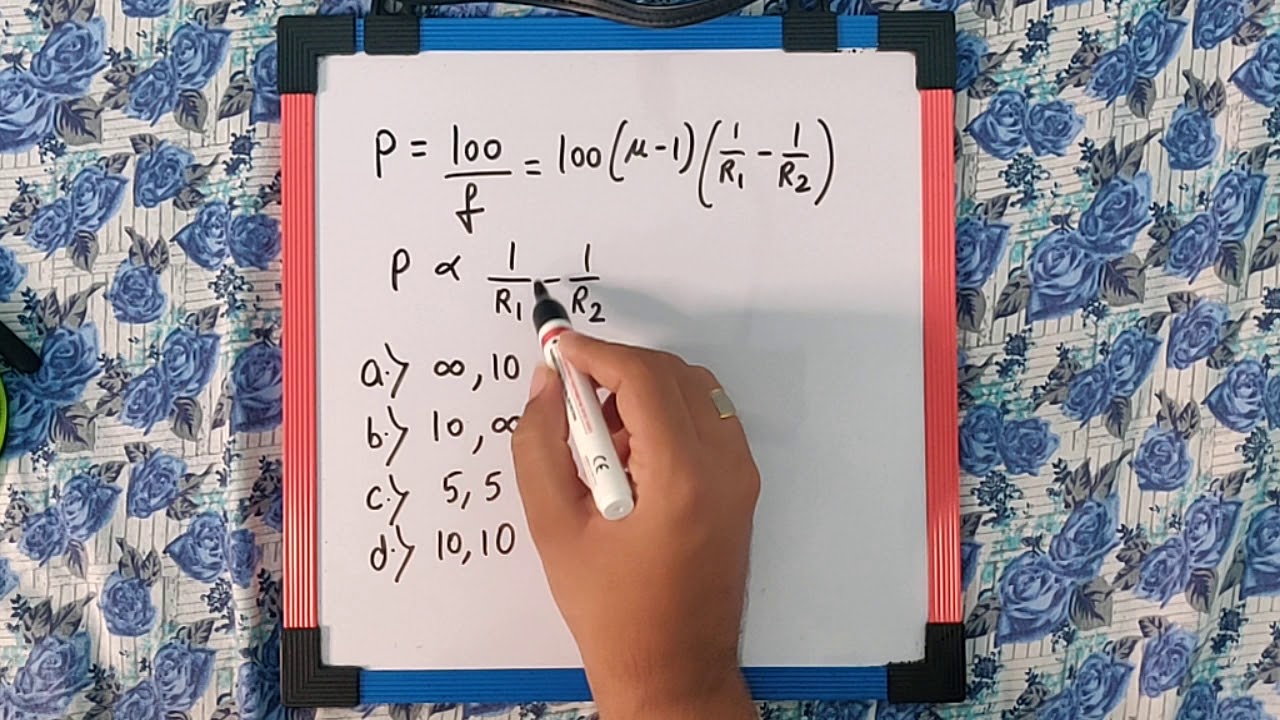 P = 100/f = 100(μ-1)(1/R₁ - 1/R₂)
P ∝ 1/R₁ - 1/R₂
a.) ∞, 10
b.) 10, ∞
c.) 5, 5
d.) 10, 10
CE